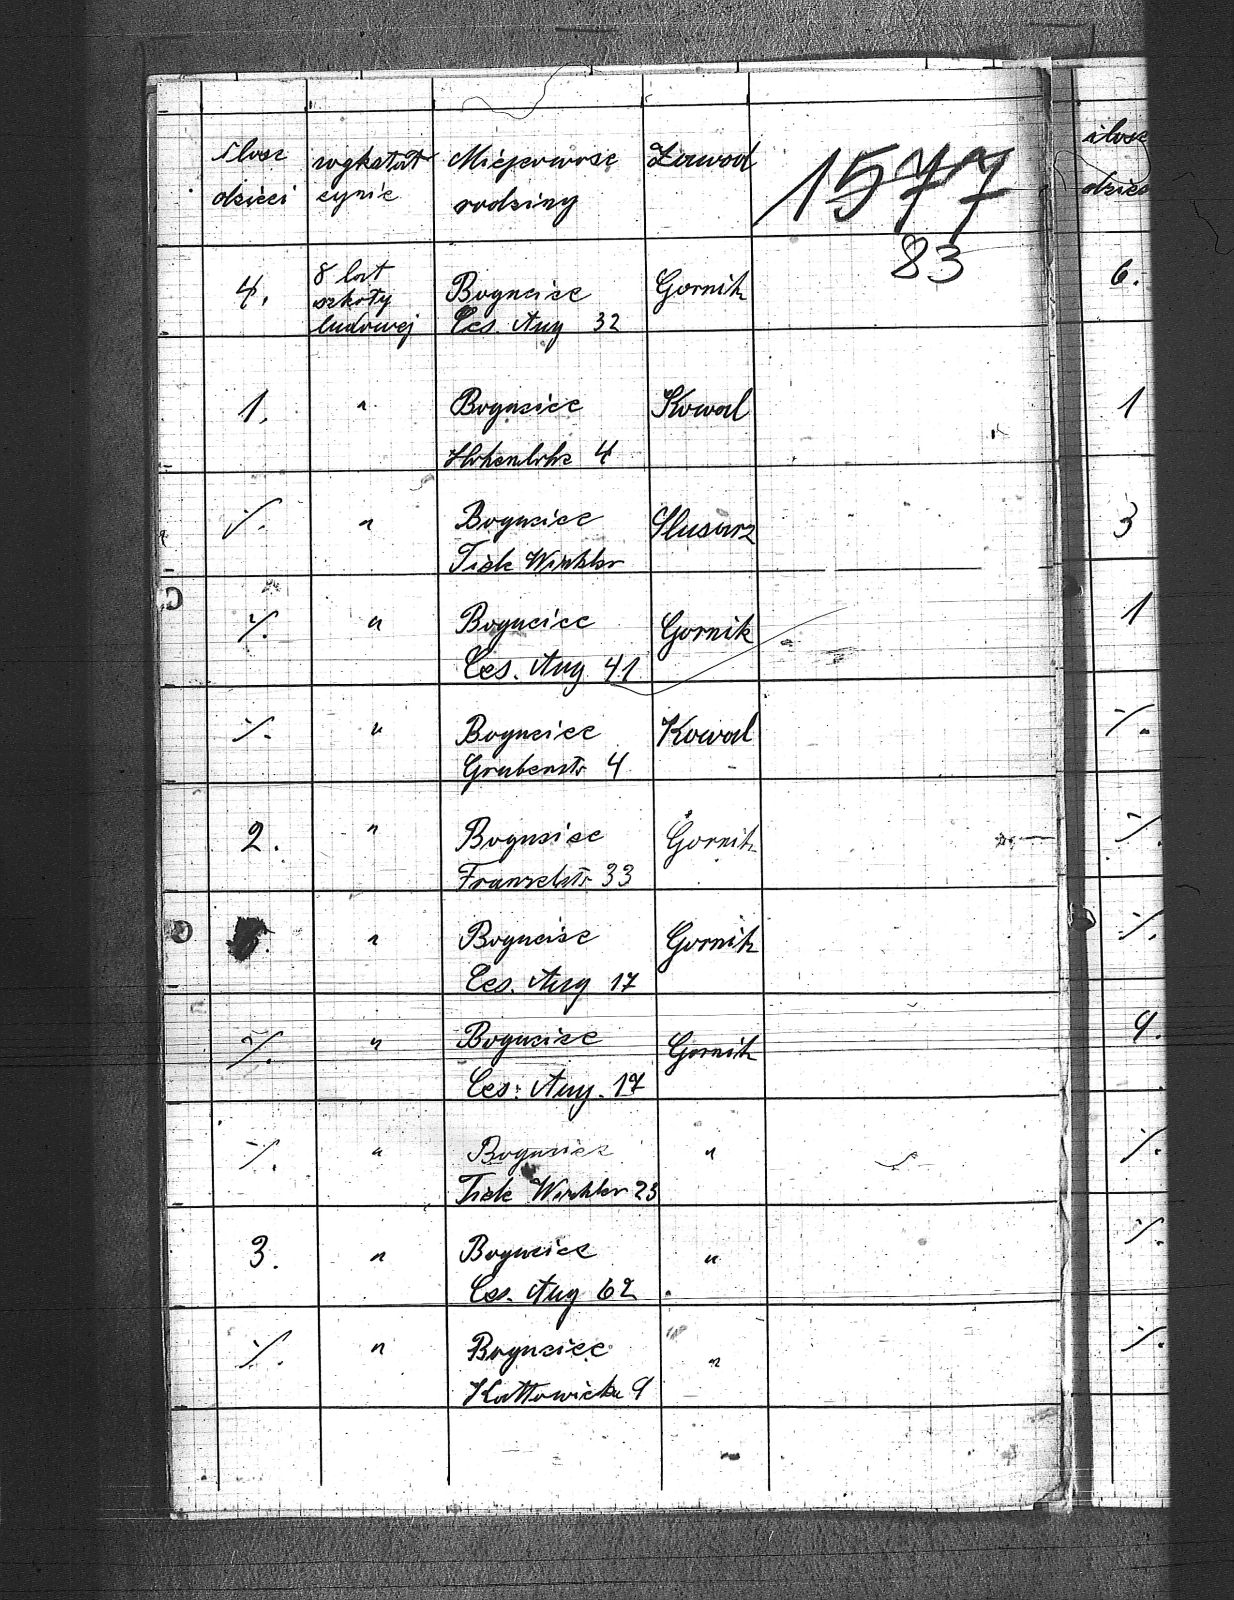 ilosc dzieci wyksztat cynie Miejscowosc rodziny Zawod 1577
83
4. 8 lat szkoty ludowej Bogucice Ces. Aug 32 Gornik
1. " Bogucice Hohenlohe 4 Kowal
·/. " Bogucice Tiele Winkler Slusarz
·/. " Bogucice Ces. Aug. 41 Gornik
·/. " Bogucice Grubenstr 4 Kowal
2. " Bogucice Franzelstr 33 Gornik
" Bogucice Ces. Aug 17 Gornik
·/. " Bogucice Ces. Aug. 17 Gornik
·/. " Bogucice Tiele Winkler 23 "
3. " Bogucice Ces. Aug 62 "
·/. " Bogucice Kattowicka 9 "
ilosc
dziec
6.
1
3
1
·/.
·/.
·/.
9.
·/.
·/.
·/.